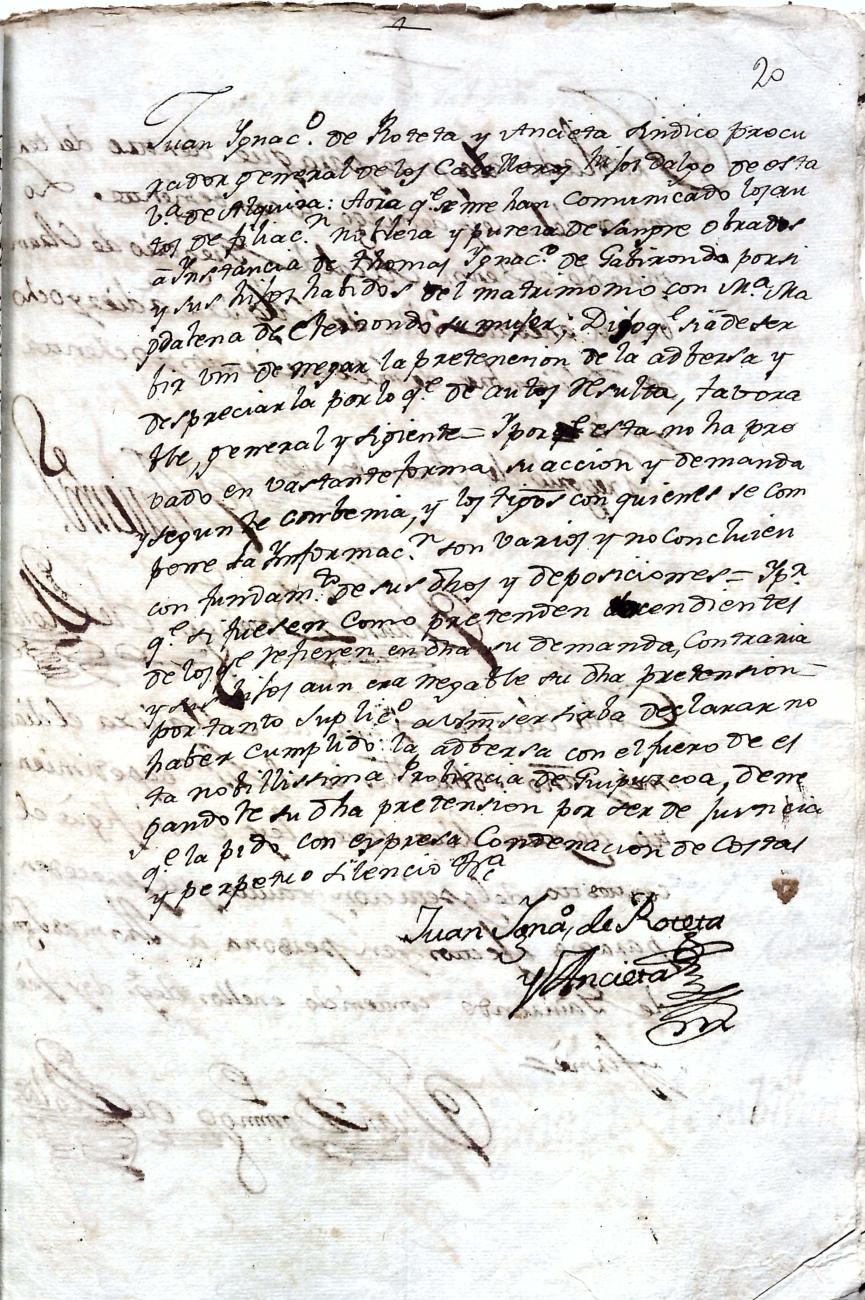 20
Juan Ygnac.º de Roteta y Ancieta sindico procu
rador general de los Caballeros hijosdalgo de esta
v.ª de Alquiza: Aora q.e se me han Comunicado los au
tos de filiac.n nobleza y pureza de sangre obrados
a Instancia de thomas Ygnac.º de Gabirondo por si
y sus hijos habidos del matrimonio con M.ª Ma
gdalena de Eleizondo su mujer; Digo q.e se a de ser
bir Vm de negar la pretencion de la adbersa y
despreciarla por lo q.e de autos Resulta, favora
ble, general y sigiente= Y por q.e esta no ha pro
vado en vastante forma, su accion y demanda
y segun le conbenia, y los tigos con quienes se com
pone la Ynformac.n son varios y no concluien
con fundam.to de sus dhos y deposiciones= Y p.r
q.e si fuesen Como pretenden decendientes
de los q.e refieren en dha su demanda, Contraria
y sus hijos aun era negable su dha pretension=
por tanto suplic.º a Vm se sirba declarar no
haber cumplido la adbersa con el fuero de es
ta nobillissima Probincia de Guipuzcoa, dene
gandole su dha pretension por ser de justicia
q.e la pido con expresa Condenacion de Costas
y perpetuo silencio &.ª
Juan Igna.º de Roteta
y Ancieta